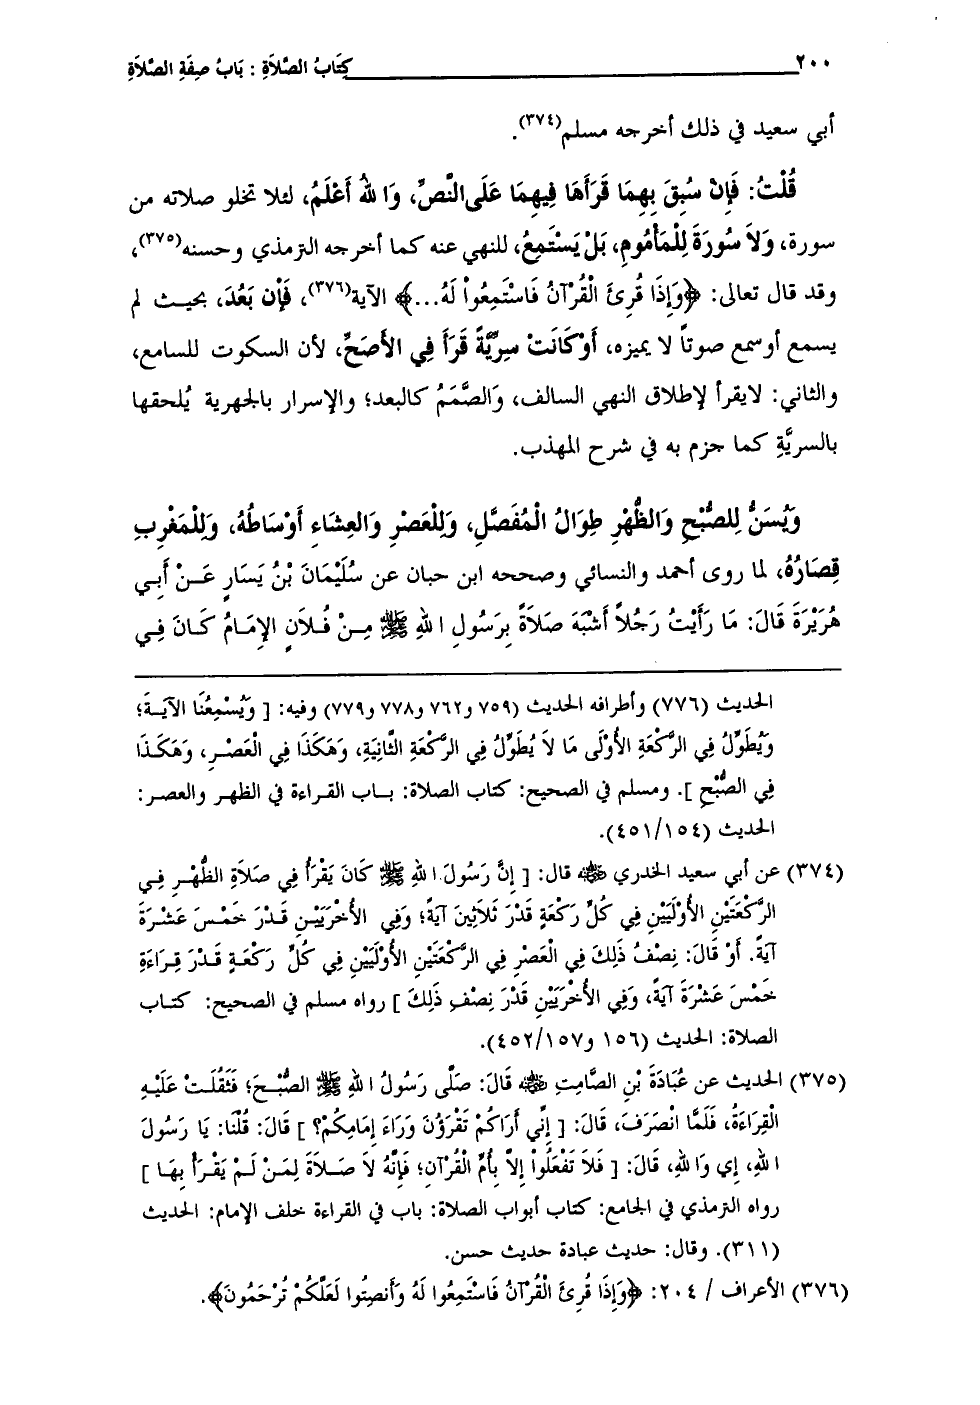 ٢٠٠ كِتَابُ الصَّلَاةِ : بَابُ صِفَةِ الصَّلَاةِ
أبي سعيد في ذلك أخرجه مسلم(٣٧٤).
قُلْتُ: فَإِنْ سُبِقَ بِهِمَا قَرَأَهَا فِيهِمَا عَلَى النَّصِّ، وَاللهُ أَعْلَمُ، لئلا تخلو صلاته من
سورة، وَلاَ سُورَةَ لِلْمَأْمُومِ، بَلْ يَسْتَمِعُ، للنهي عنه كما أخرجه الترمذي وحسنه(٣٧٥)،
وقد قال تعالى: ﴿وَإِذَا قُرِئَ الْقُرْآنُ فَاسْتَمِعُواْ لَهُ...﴾ الآية(٣٧٦)، فَإْن بَعُدَ، بحيث لم
يسمع أوسمع صوتاً لا يميزه، أَوْ كَانَتْ سِرِّيَّةً قَرَأَ فِي الأَصَحِّ، لأن السكوت للسامع،
والثاني: لايقرأ لإطلاق النهي السالف، وَالصَّمَمُ كالبعد؛ والإسرار بالجهرية يُلحقها
بالسريَّةِ كما جزم به في شرح المهذب.
وَيُسَنُّ لِلصُّبْحِ وَالظُّهْرِ طِوَالُ الْمُفَصَّلِ، وَلِلْعَصْرِ وَالعِشَاءِ أَوْسَاطُهُ، وَلِلْمَغْرِبِ
قِصَارُهُ، لما روى أحمد والنسائي وصححه ابن حبان عن سُلَيْمَانَ بْنُ يَسَارٍ عَنْ أَبِي
هُرَيْرَةَ قَالَ: مَا رَأَيْتُ رَجُلاً أَشْبَهَ صَلاَةً بِرَسُولِ اللهِ ﷺ مِنْ فُلاَنٍ الإِمَامُ كَانَ فِي
الحديث (٧٧٦) وأطرافه الحديث (٧٥٩ و٧٦٢ و٧٧٨ و٧٧٩) وفيه: [ وَيُسْمِعُنَا الآيَةَ؛
وَيُطَوِّلُ فِي الرَّكْعَةِ الأُوْلَى مَا لاَ يُطَوِّلُ فِي الرَّكْعَةِ الثَّانِيَةِ، وَهَكَذَا فِي الْعَصْرِ، وَهَكَذَا
فِي الصُّبْحِ ]. ومسلم في الصحيح: كتاب الصلاة: باب القراءة في الظهر والعصر:
الحديث (٤٥١/١٥٤).
(٣٧٤) عن أبي سعيد الخدري ﷺ قال: [ إِنَّ رَسُولَ اللهِ ﷺ كَانَ يَقْرَأُ فِي صَلاَةِ الظُّهْرِ فِي
الرَّكْعَتَيْنِ الأُوْلَيَيْنِ فِي كُلِّ رَكْعَةٍ قَدْرَ ثَلاَثِينَ آيَةً؛ وَفِي الأُخْرَيَيْنِ قَدْرَ خَمْسَ عَشْرَةَ
آيَةً. أَوْ قَالَ: نِصْفُ ذَلِكَ فِي الْعَصْرِ فِي الرَّكْعَتَيْنِ الأُوْلَيَيْنِ فِي كُلِّ رَكْعَةٍ قَدْرَ قِرَاءَةِ
خَمْسَ عَشْرَةَ آيَةً، وَفِي الأُخْرَيَيْنِ قَدْرَ نِصْفِ ذَلِكَ ] رواه مسلم في الصحيح: كتاب
الصلاة: الحديث (١٥٦ و٤٥٢/١٥٧).
(٣٧٥) الحديث عن عُبَادَةَ بْنِ الصَّامِتِ ﷺ قَالَ: صَلَّى رَسُولُ اللهِ ﷺ الصُّبْحَ؛ فَثَقُلَتْ عَلَيْهِ
الْقِرَاءَةُ، فَلَمَّا انْصَرَفَ، قَالَ: [ إِنِّي أَرَاكُمْ تَقْرَؤُنَ وَرَاءَ إِمَامِكُمْ؟ ] قَالَ: قُلْنَا: يَا رَسُولَ
اللهِ، إِي وَاللهِ، قَالَ: [ فَلاَ تَفْعَلُواْ إِلاَّ بِأُمِّ الْقُرْآنِ؛ فَإِنَّهُ لاَ صَلاَةَ لِمَنْ لَمْ يَقْرَأْ بِهَا ]
رواه الترمذي في الجامع: كتاب أبواب الصلاة: باب في القراءة خلف الإمام: الحديث
(٣١١). وقال: حديث عبادة حديث حسن.
(٣٧٦) الأعراف / ٢٠٤: ﴿وَإِذَا قُرِئَ الْقُرْآنُ فَاسْتَمِعُوا لَهُ وَأَنصِتُوا لَعَلَّكُمْ تُرْحَمُونَ﴾.